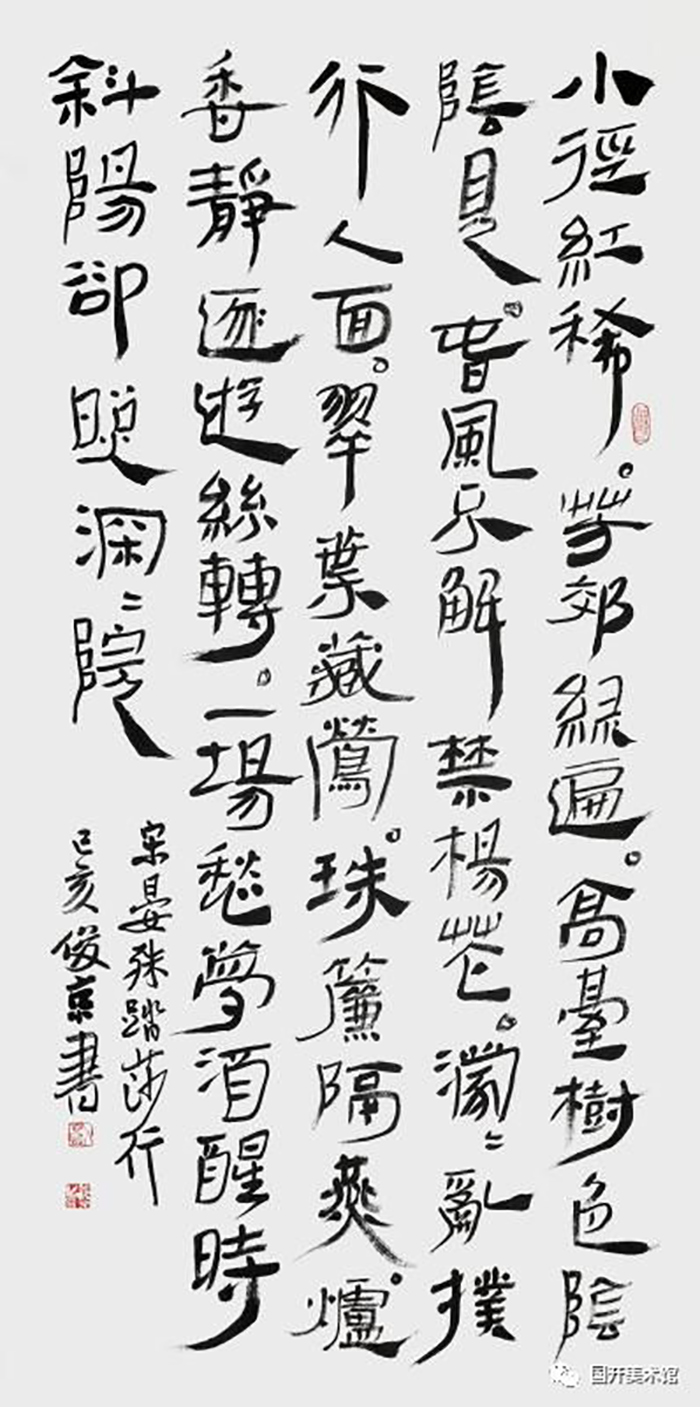 小徑紅稀。芳郊綠遍。高臺樹色陰
陰見。春風不解禁楊花。濛〻亂撲
行人面。翠葉藏鶯。珠簾隔燕。爐
香靜逐遊絲轉。一場愁夢酒醒時
斜陽卻照深〻院
宋晏殊踏莎行
己亥俊京書
国开美术馆